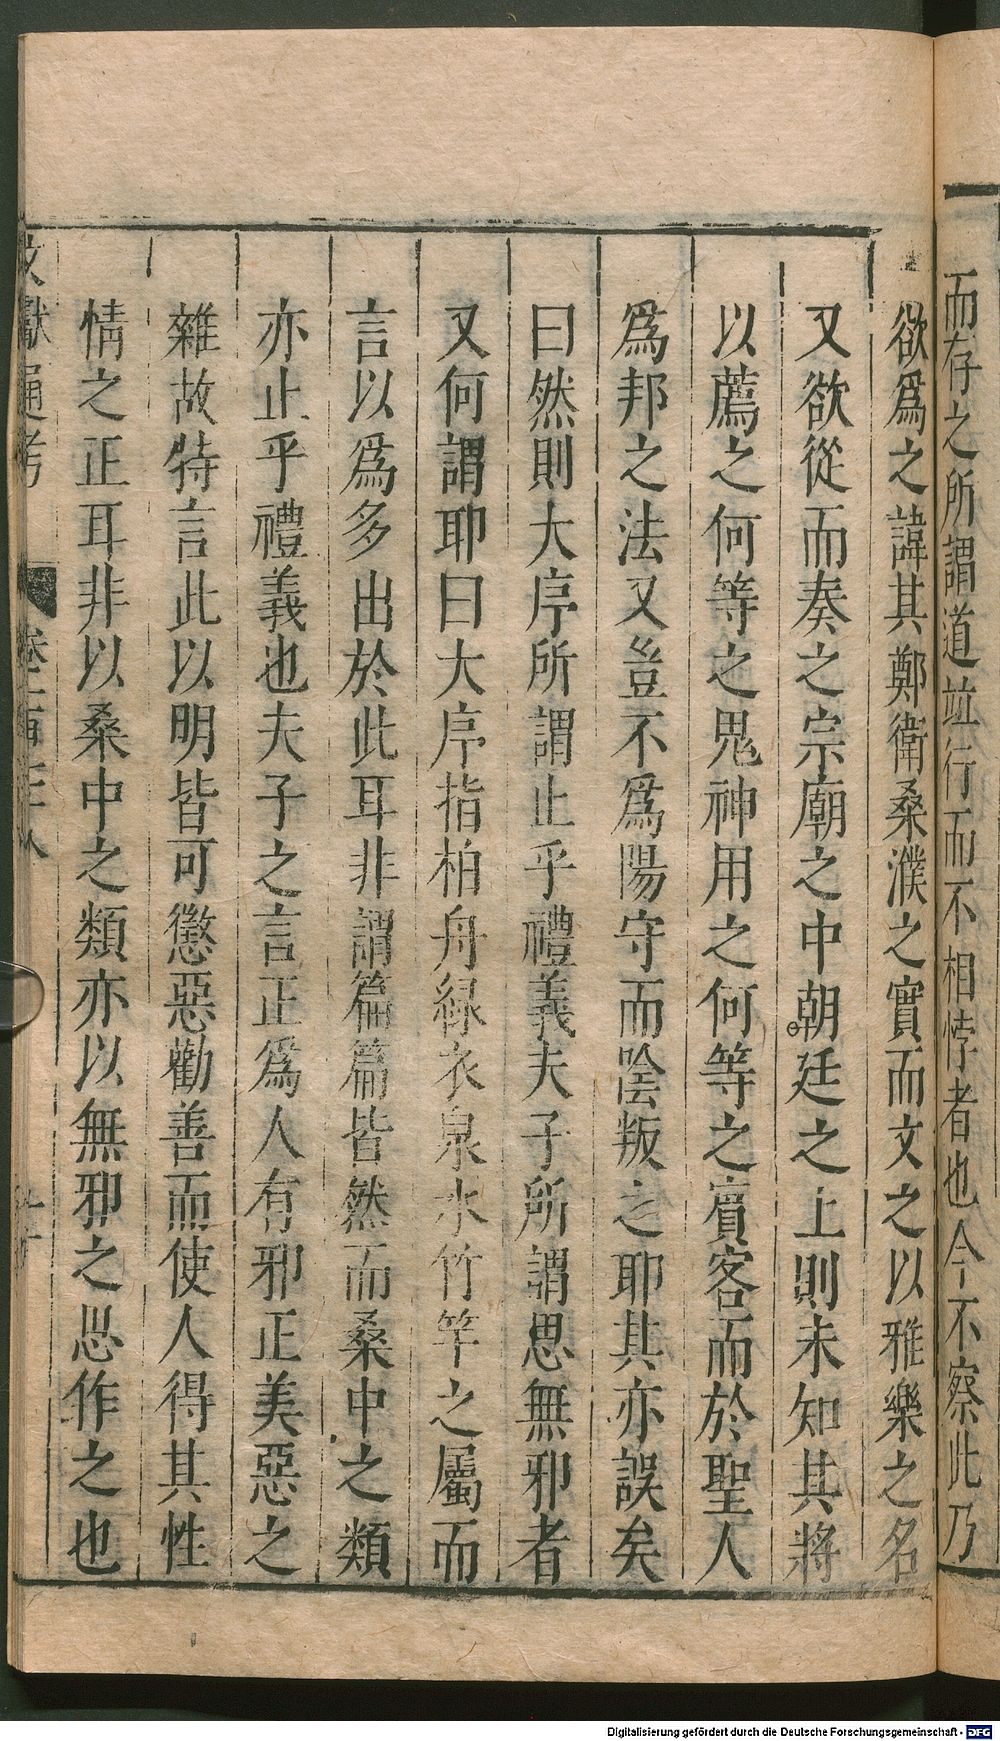 而存之所謂道並行而不相悖者也今不察此乃
欲爲之諱其鄭衛桑濮之實而文之以雅樂之名
又欲從而奏之宗廟之中朝廷之上則未知其將
以薦之何等之鬼神用之何等之賓客而於聖人
爲邦之法又豈不爲陽守而陰叛之耶其亦誤矣
曰然則大序所謂止乎禮義夫子所謂思無邪者
又何謂耶曰大序指柏舟緑衣泉水竹竿之屬而
言以爲多出於此耳非謂篇篇皆然而桑中之類
亦止乎禮義也夫子之言正爲人有邪正美惡之
雜故特言此以明皆可懲惡勸善而使人得其性
情之正耳非以桑中之類亦以無邪之思作之也
文獻通考 卷一百七十八
Digitalisierung gefördert durch die Deutsche Forschungsgemeinschaft - DFG